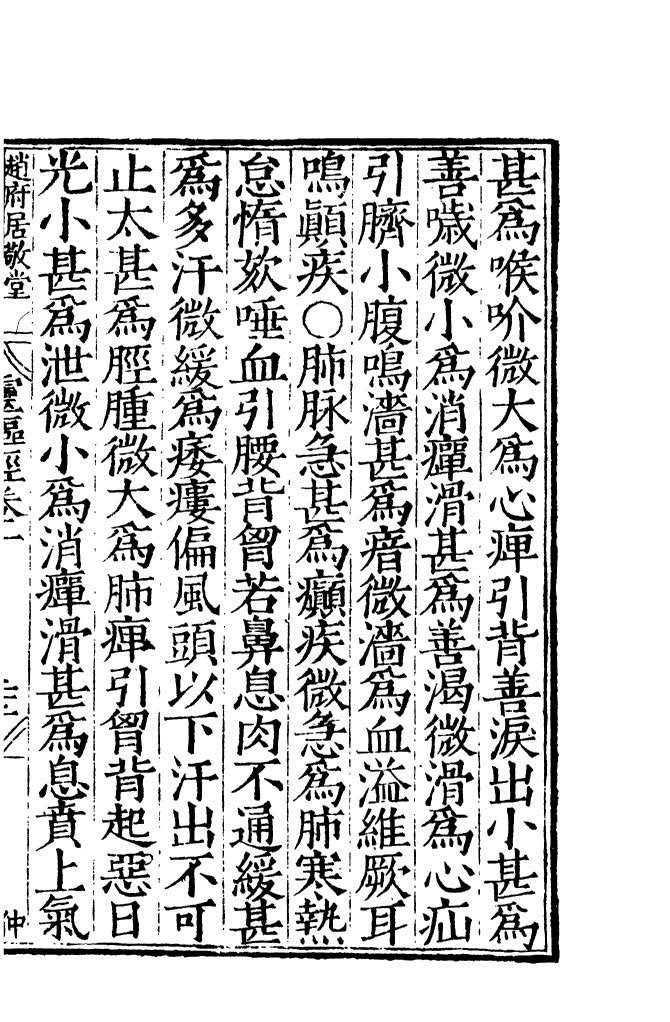 甚爲喉吤微大爲心痺引背善淚出小甚爲
善噦微小爲消癉滑甚爲善渴微滑爲心疝
引臍小腹鳴濇甚爲瘖微濇爲血溢維厥耳
鳴顚疾○肺脉急甚爲癲疾微急爲肺寒熱
怠惰欬唾血引腰背胷若鼻息肉不通緩甚
爲多汗微緩爲痿瘻偏風頭以下汗出不可
止太甚爲脛腫微大爲肺痺引胷背起惡日
光小甚爲泄微小爲消癉滑甚爲息賁上氣
趙府居敬堂 靈樞經卷 仲